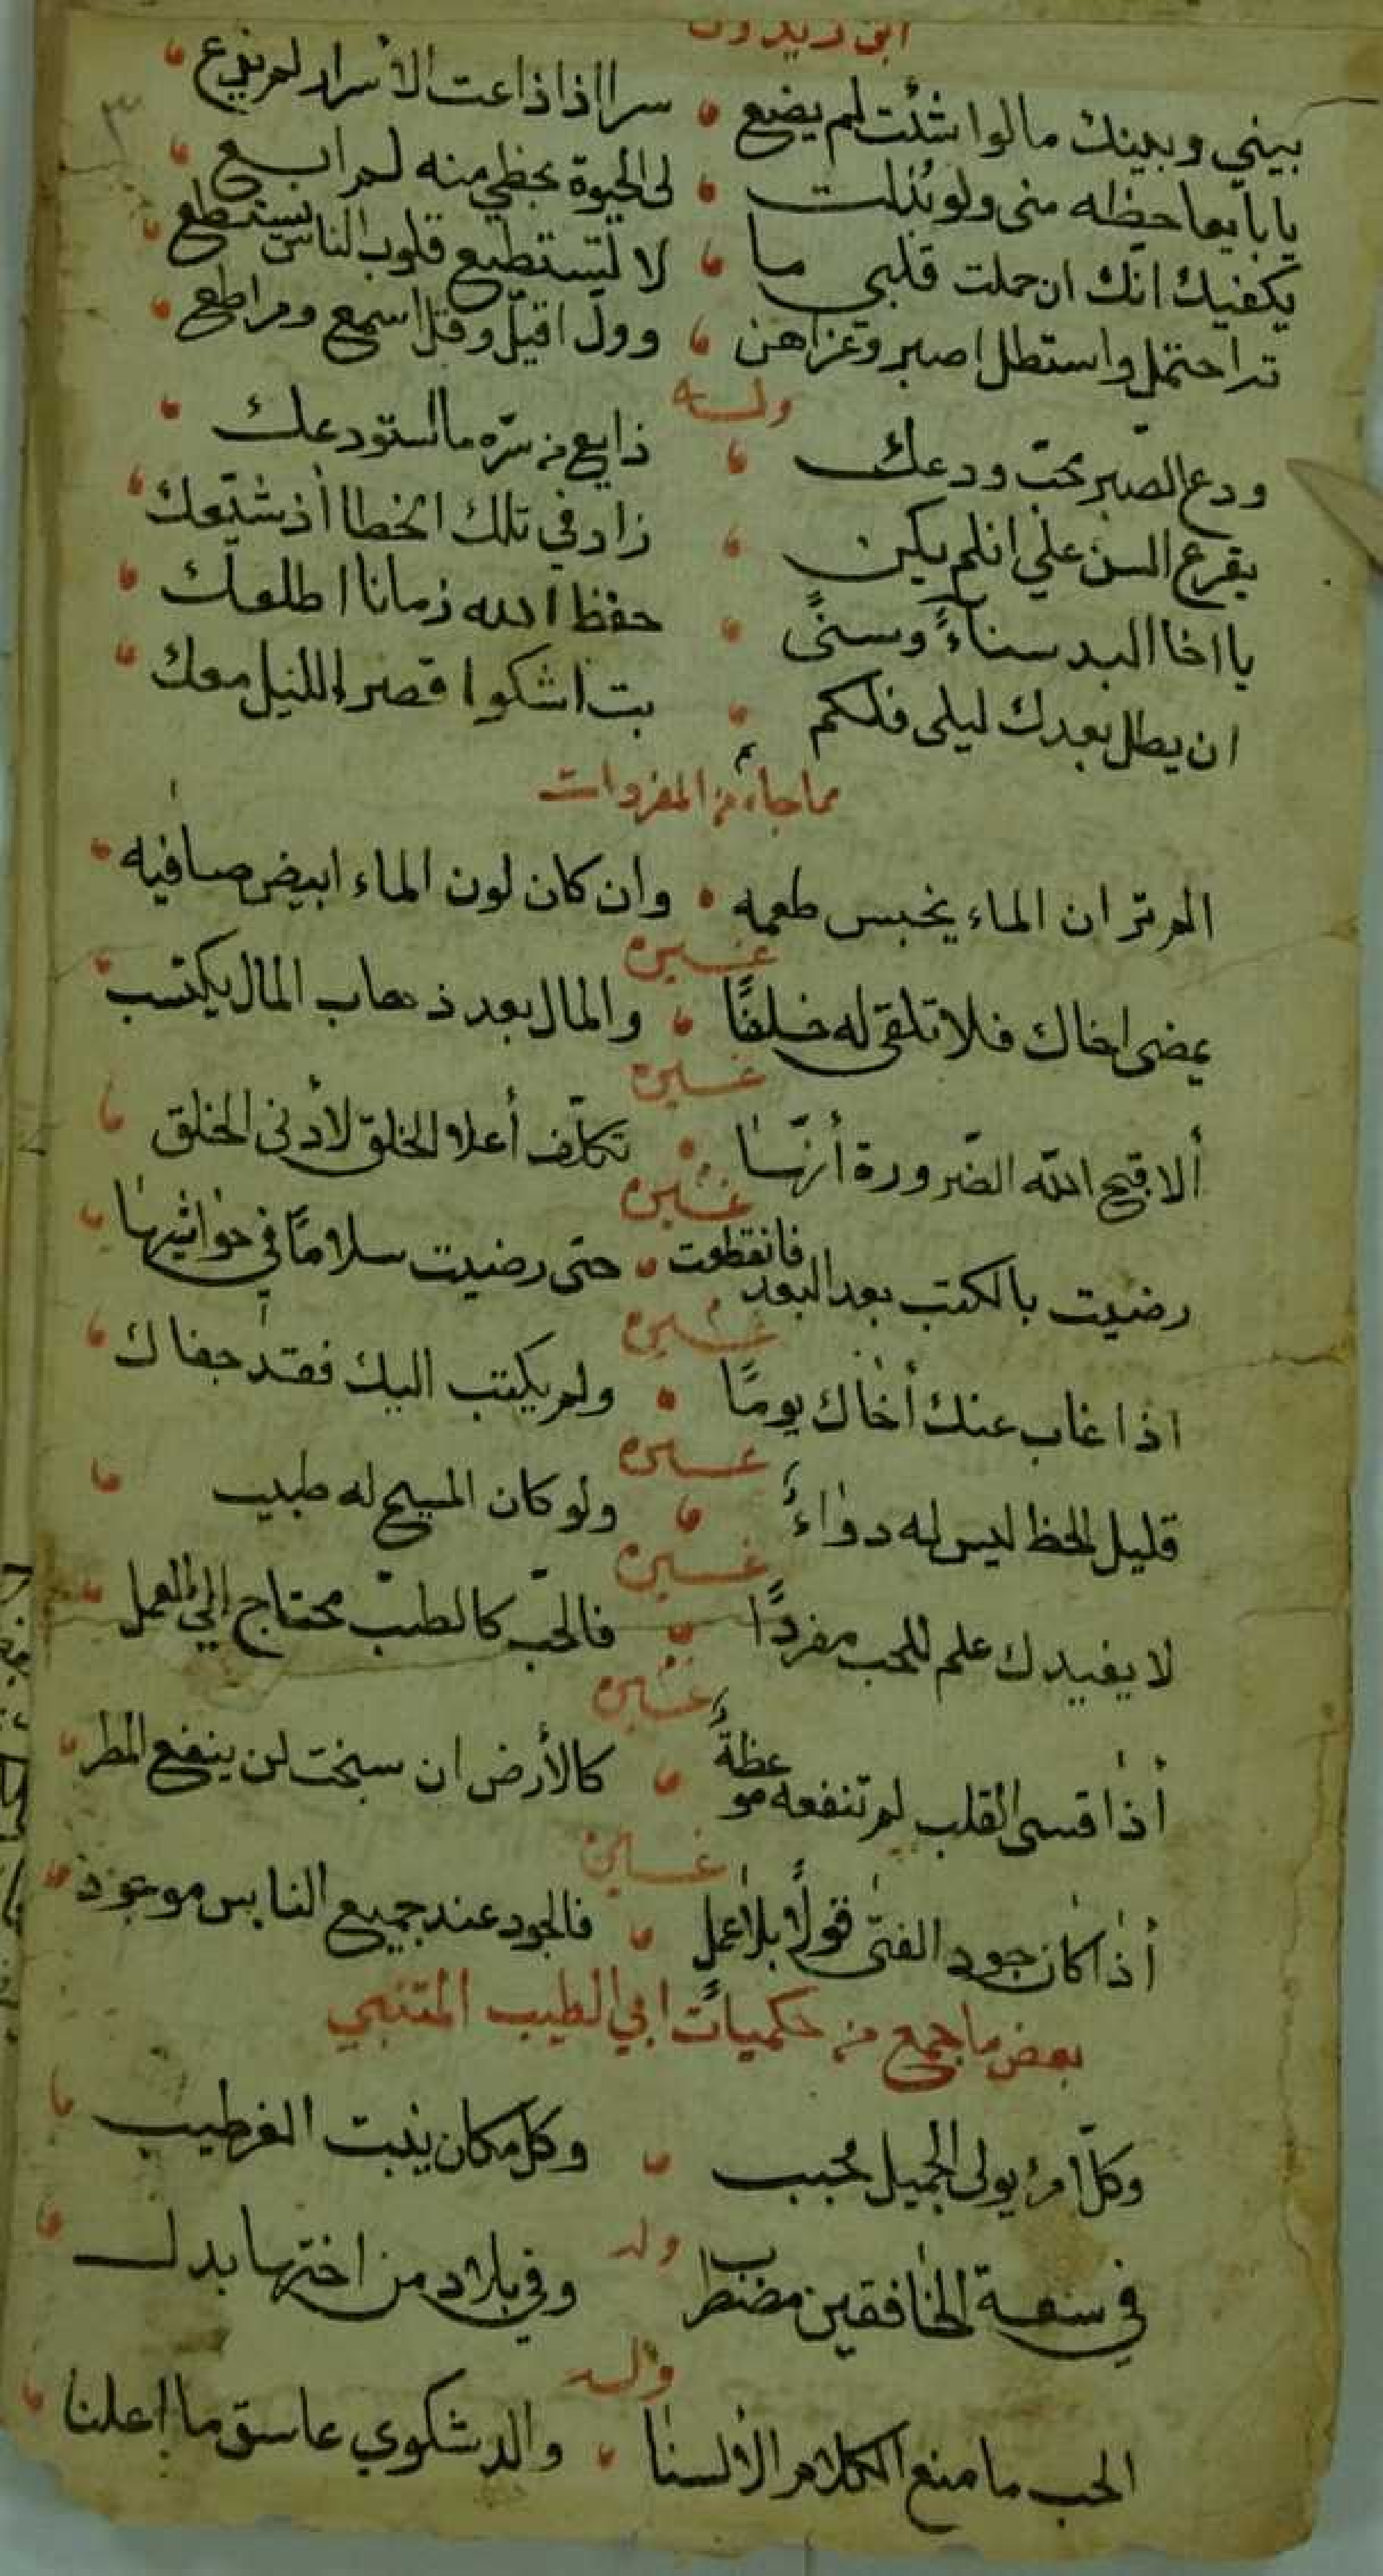 ابن زيدون
بيني وبينك مالوا شئت لم يضع سرا اذا ذاعت الأسرار لم يذع
٣
يا بايعا حظه مني ولو بُذلت لي الحيوة بحظي منه لم ابع
يكفيك انّك ان حملت قلبي ما لا تستطيع قلوب الناس يستطع
ته احتمل واستطل اصبر وعز اهن وولّ اقبل وقل اسمع ومر اطع
وله
ودع الصبر محبّ ودعك ذايع من سرّه ما استودعك
يقرع السن علي ان لم يكن زاد في تلك الخطا اذ شيّعك
يا اخا البد سناءً وسنىً حفظ الله زمانا اطلعك
ان يطل بعدك ليلى فلكم بت اشكوا قصر الليل معك
مما جاء من المفردات
الم تر ان الماء يخبس طعمه وان كان لون الماء ابيض صافيه
غيره
يمضى اخاك فلا تلقى له خلفًا والمال بعد ذهاب المال يكتسب
غيره
ألا قبح الله الضّرورة أنّها تكلّف أعلا الخلق لأدنى الخلق
غيره
رضيت بالكتب بعد البعد فانقطعت حتى رضيت سلامًا في حواشيها
غيره
اذا غاب عنك أخاك يومًا ولم يكتب اليك فقد جفاك
غيره
قليل الحظ ليس له دواءُ ولو كان المسيح له طبيب
غيره
لا يفيدك علم للحب مفردًا فالحبّ كالطبّ محتاج إلى العمل
غيره
أذا قسى القلب لم تنفعه موعظةُ كالأرض ان سبخت لن ينفع المطر
غيره
أذا كان جود الفتى قولًا بلا عمل فالجود عند جميع الناس موجود
بعض ما جمع من حكميات ابي الطيب المتنبي
وكلّ امرئ يولى الجميل محبب وكل مكان ينبت العز طيب
وله
في سعة الخافقين مضطرب وفي بلاد من اختها بدل
وله
الحب ما منع الكلام الألسنا والذ شكوي عاسق ما اعلنا